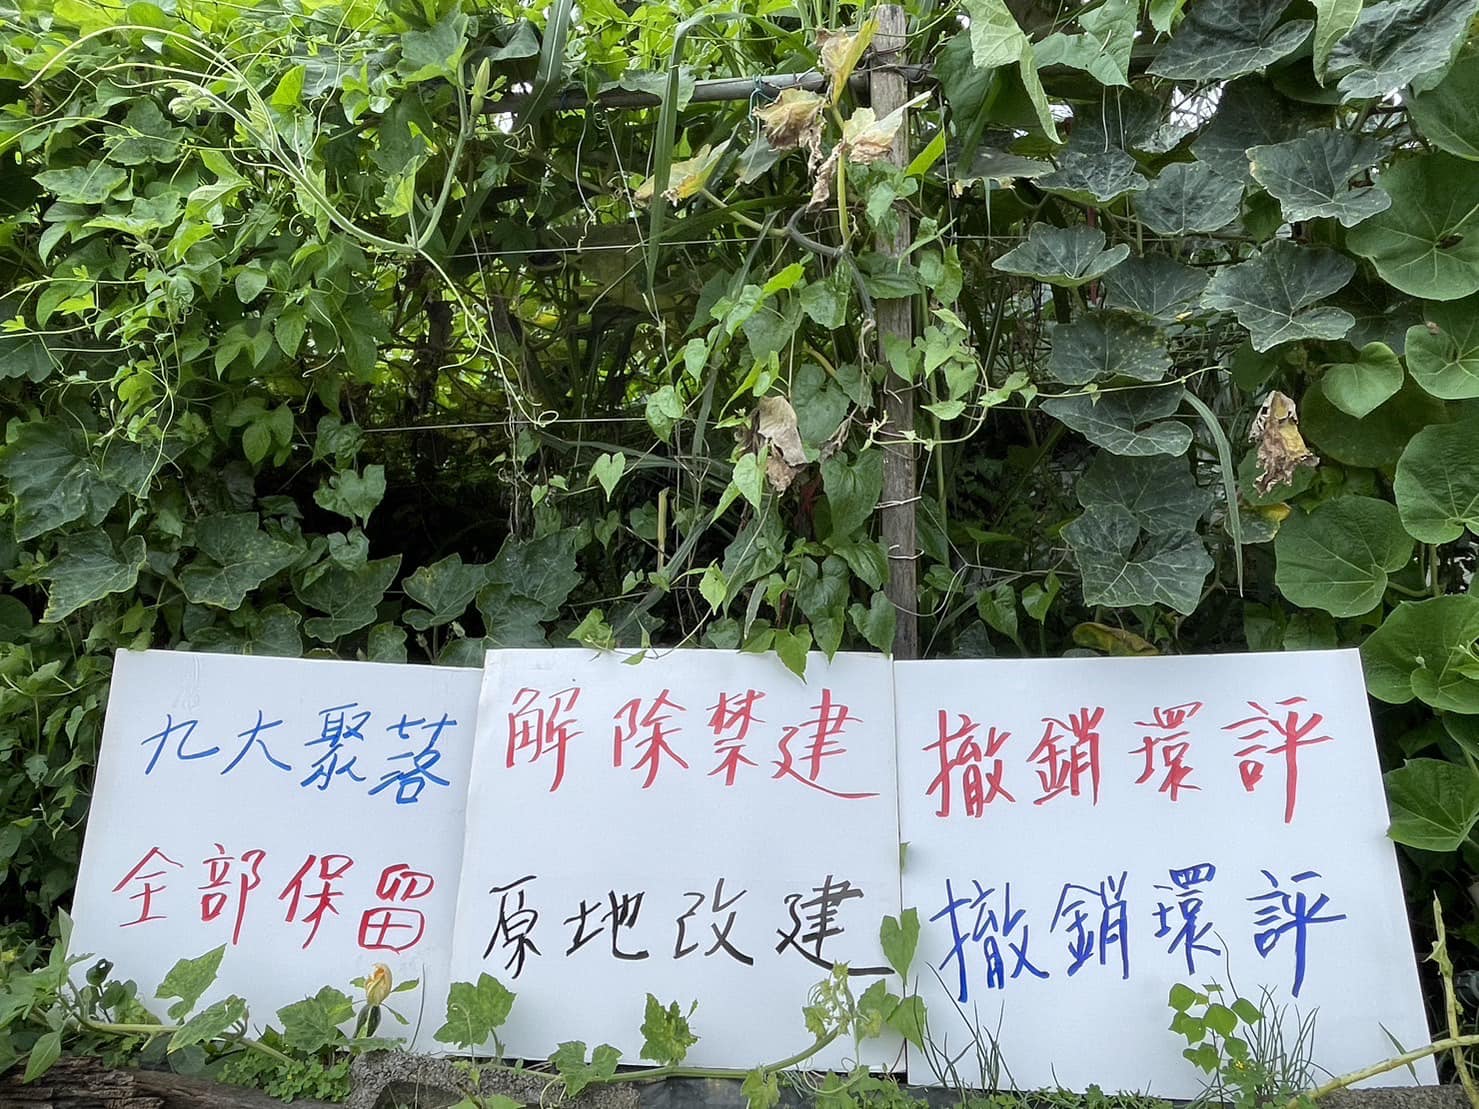 九大聚落
全部保留
解除禁建
原地改建
撤銷環評
撤銷環評